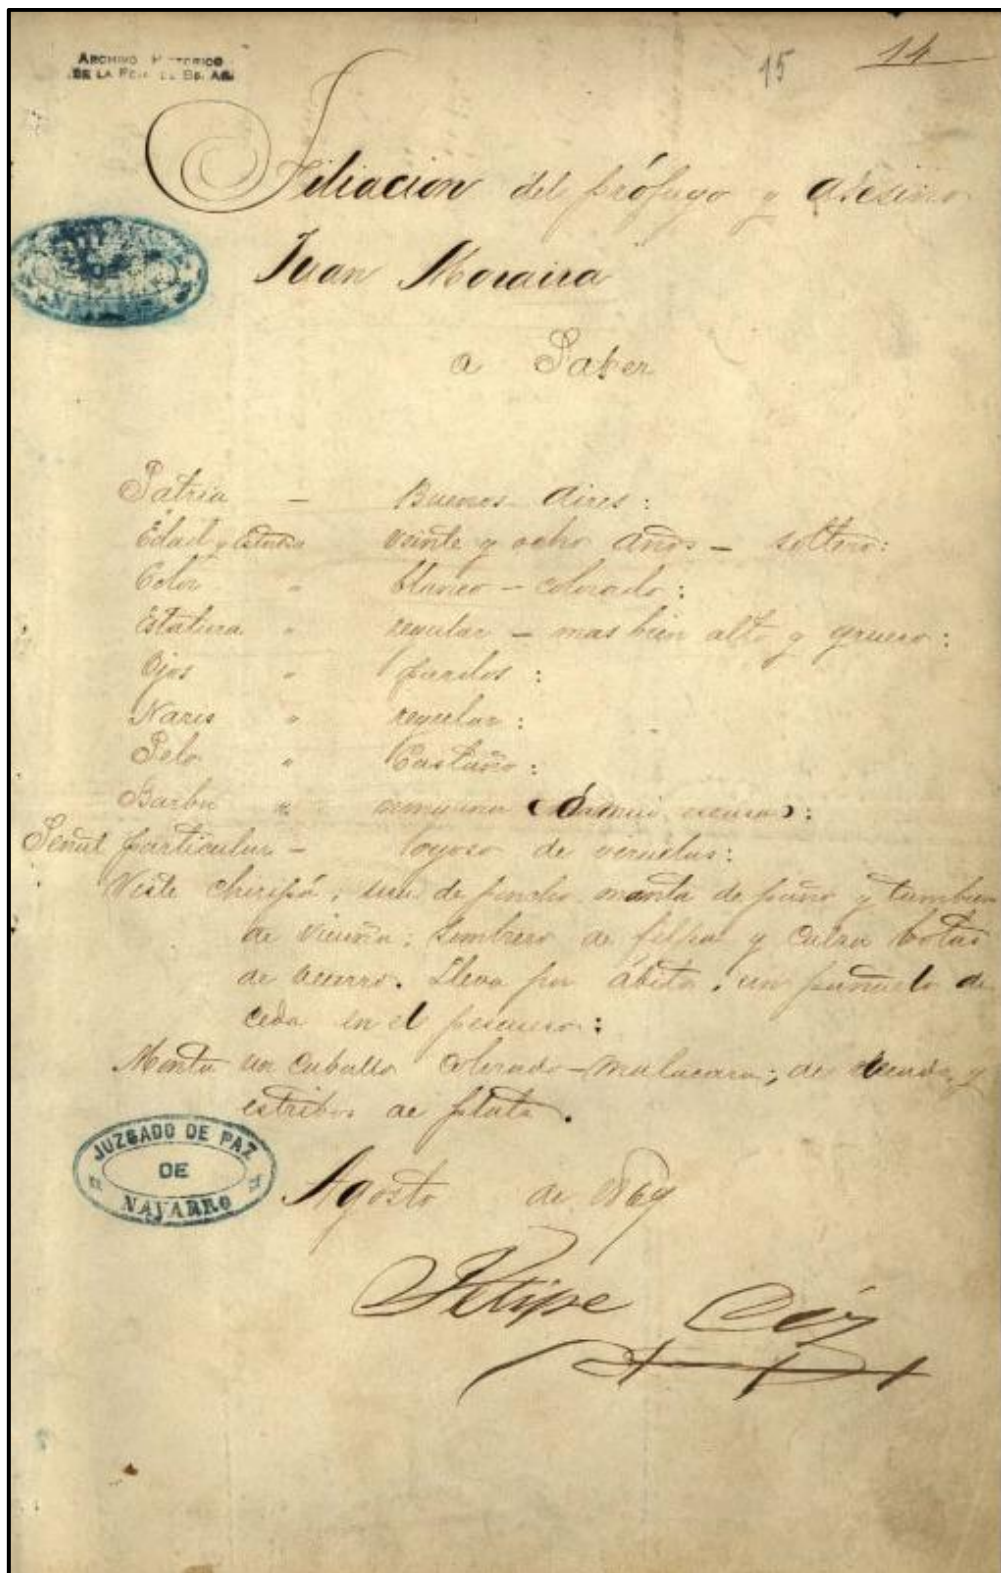 ARCHIVO HISTORICO
DE LA PCIA. DE BS. AS.
15 14
Filiacion del prófugo y asesino
Juan Moraira
a Saber
Patria - Buenos Aires:
Edad y Estado veinte y ocho años - soltero:
Color " blanco - colorado:
Estatura " regular - mas bien alto y grueso:
Ojos " pardos:
Naris " regular:
Pelo " Castaño:
Barba " ninguna
Señal particular - oyoso de viruelas:
Viste chiripá; usa de poncho, manta de paño y tambien
de vicuña; Sombrero de felpa y calza botas
de becerro. Lleva por ábito, un pañuelo de
ceda en el pescueso:
Monta un caballo colorado-malacara; de rienda y
estribos de plata.
JUZGADO DE PAZ
DE
NAVARRO
Agosto de 1869
Felipe Cóz